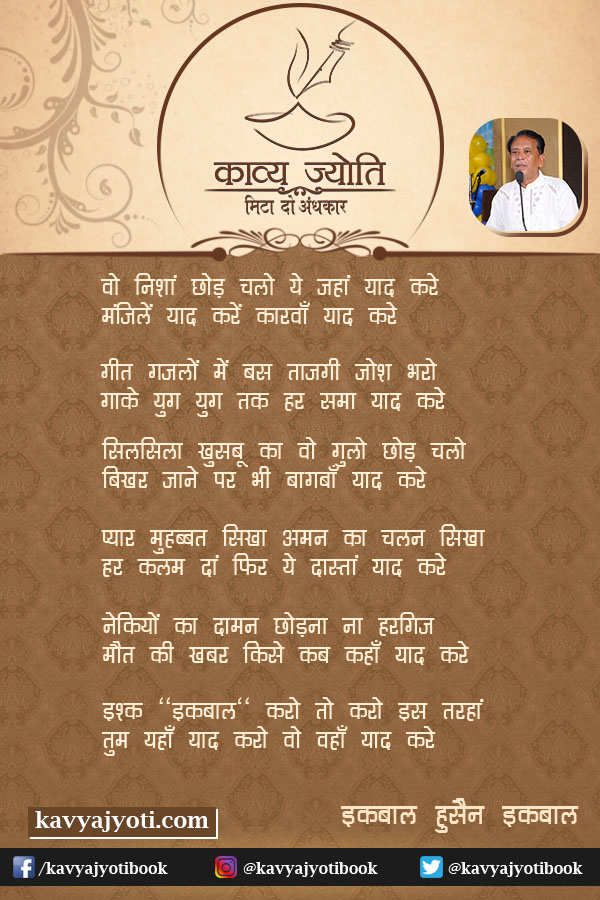 काव्य ज्योति
मिटा दो अंधकार
वो निशां छोड़ चलो ये जहां याद करे
मंजिलें याद करें कारवाँ याद करे
गीत गजलों में बस ताजगी जोश भरो
गाके युग युग तक हर समा याद करे
सिलसिला खुसबू का वो गुलो छोड़ चलो
बिखर जाने पर भी बागबाँ याद करे
प्यार मुहब्बत सिखा अमन का चलन सिखा
हर कलम दां फिर ये दास्तां याद करे
नेकियों का दामन छोड़ना ना हरगिज
मौत की खबर किसे कब कहाँ याद करे
इश्क “इकबाल“ करो तो करो इस तरहां
तुम यहाँ याद करो वो वहाँ याद करे
इकबाल हुसैन इकबाल
kavyajyoti.com
/kavyajyotibook @kavyajyotibook @kavyajyotibook